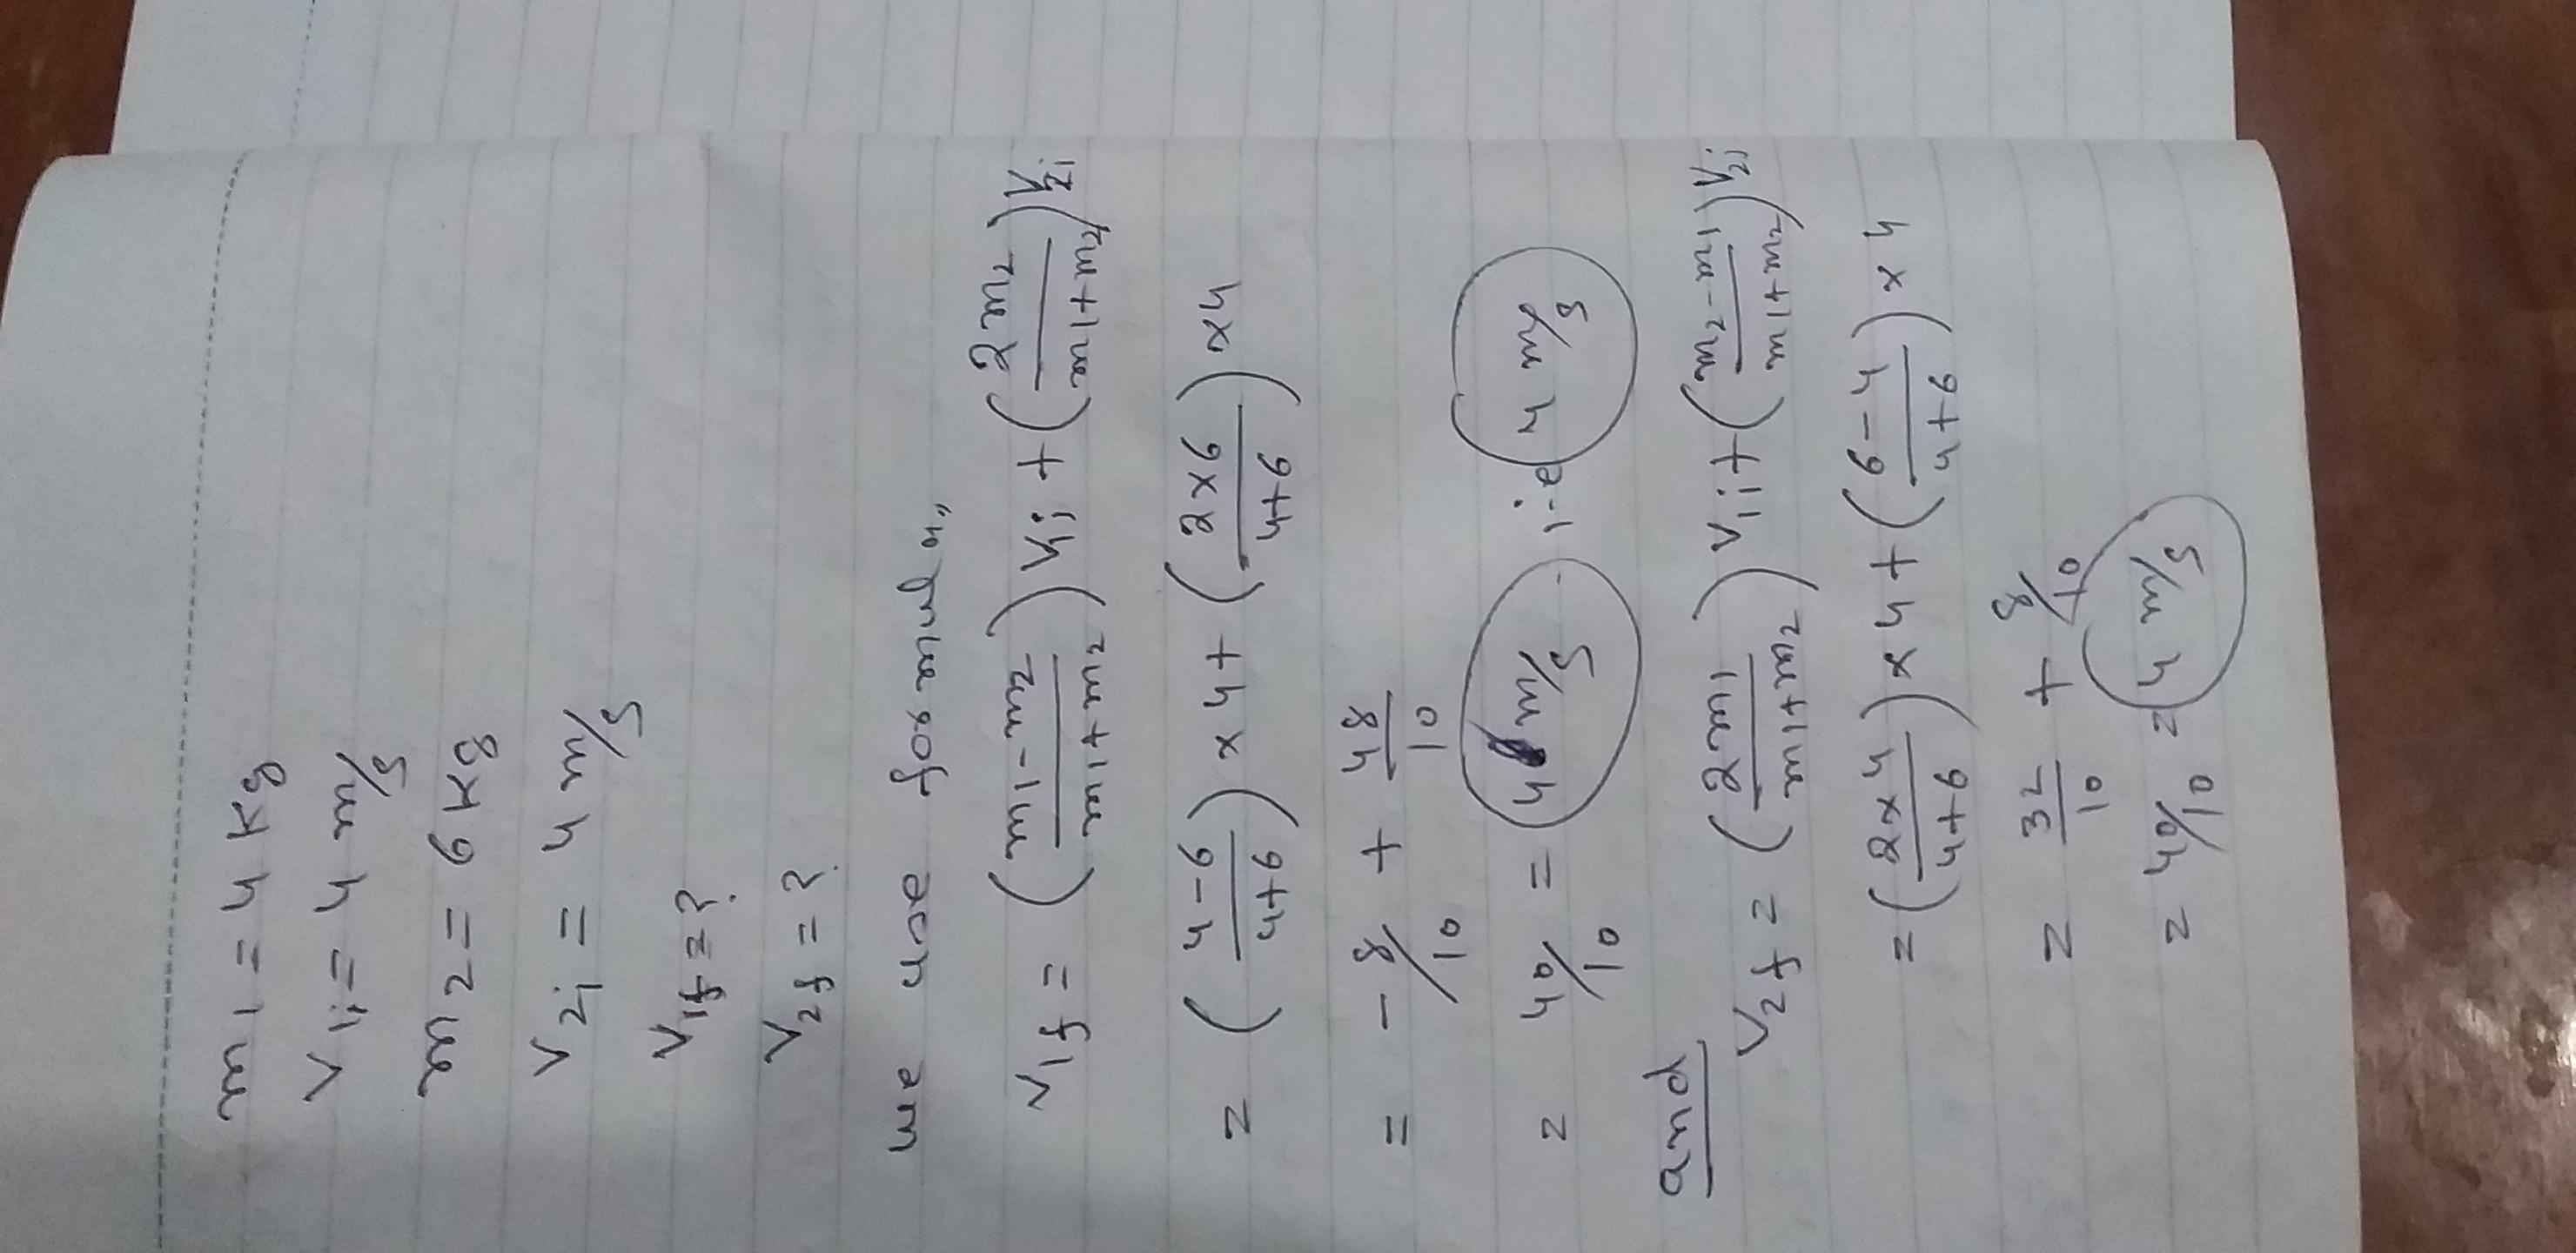 m1 = 4 Kg
v1i = 4 m/s
m2 = 6 Kg
v2i = 4 m/s
v1f = ?
v2f = ?
we use formula,,
v1f = (m1-m2/m1+m2) v1i + (2m2/m1+m2) v2i
= (4-6/4+6) x 4 + (2x6/4+6) x 4
= -8/10 + 48/10
= 40/10 = 4 m/s i-e 4 m/s
and
v2f = (2m1/m1+m2) v1i + (m2-m1/m1+m2) v2i
= (2x4/4+6) x 4 + (6-4/4+6) x 4
= 32/10 + 8/10
= 40/10 = 4 m/s